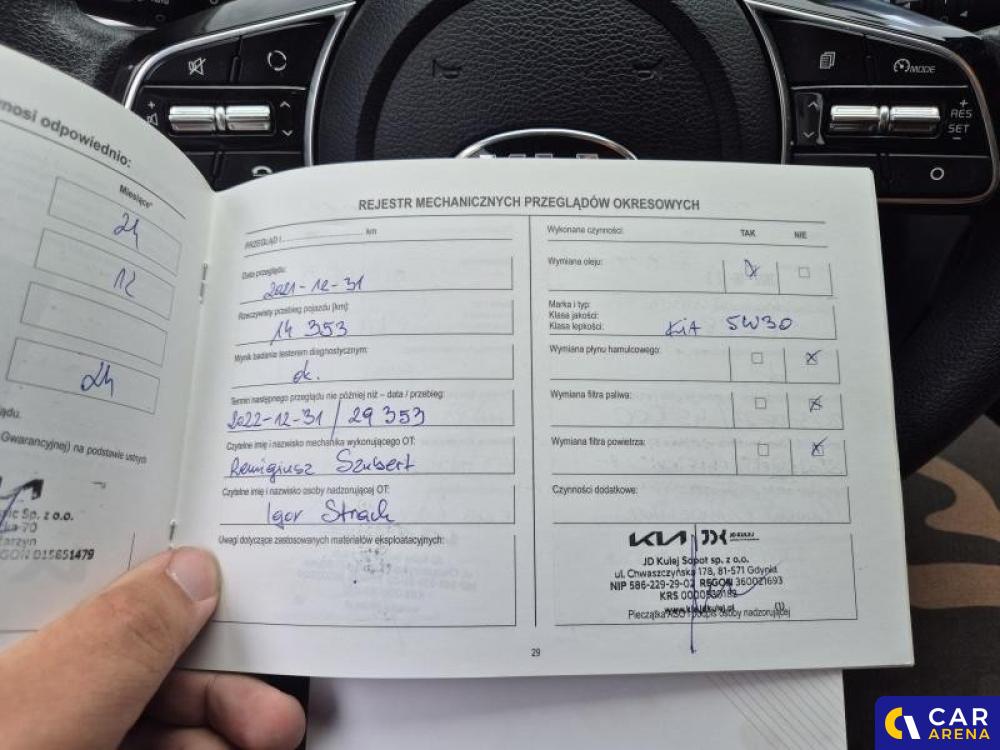 MODE
RES
SET
nosi odpowiednio:
Miesiące*
24
12
24
ądu.
Gwarancyjnej) na podstawie ustnych
Sp. z o.o.
ka 70
arzyn
GON 015651479
REJESTR MECHANICZNYCH PRZEGLĄDÓW OKRESOWYCH
PRZEGLĄD I km
Data przeglądu:
2021-12-31
Rzeczywisty przebieg pojazdu [km]:
14 353
Wynik badania testerem diagnostycznym:
ok.
Termin następnego przeglądu nie później niż – data / przebieg:
2022-12-31 / 29 353
Czytelne imię i nazwisko mechanika wykonującego OT:
Remigiusz Szubert
Czytelne imię i nazwisko osoby nadzorującej OT:
Igor Strach
Uwagi dotyczące zastosowanych materiałów eksploatacyjnych:
Wykonane czynności: TAK NIE
Wymiana oleju:
Marka i typ:
Klasa jakości:
Klasa lepkości:
KIA 5W30
Wymiana płynu hamulcowego:
Wymiana filtra paliwa:
Wymiana filtra powietrza:
Czynności dodatkowe:
KIA JDK JD KULEJ
JD Kulej Sopot sp. z o.o.
ul. Chwaszczyńska 178, 81-571 Gdynia
NIP 586-229-29-02 REGON 360021693
KRS
www.kiajdkulej.pl (1)
Pieczątka ASO i podpis osoby nadzorującej
29
CAR
ARENA